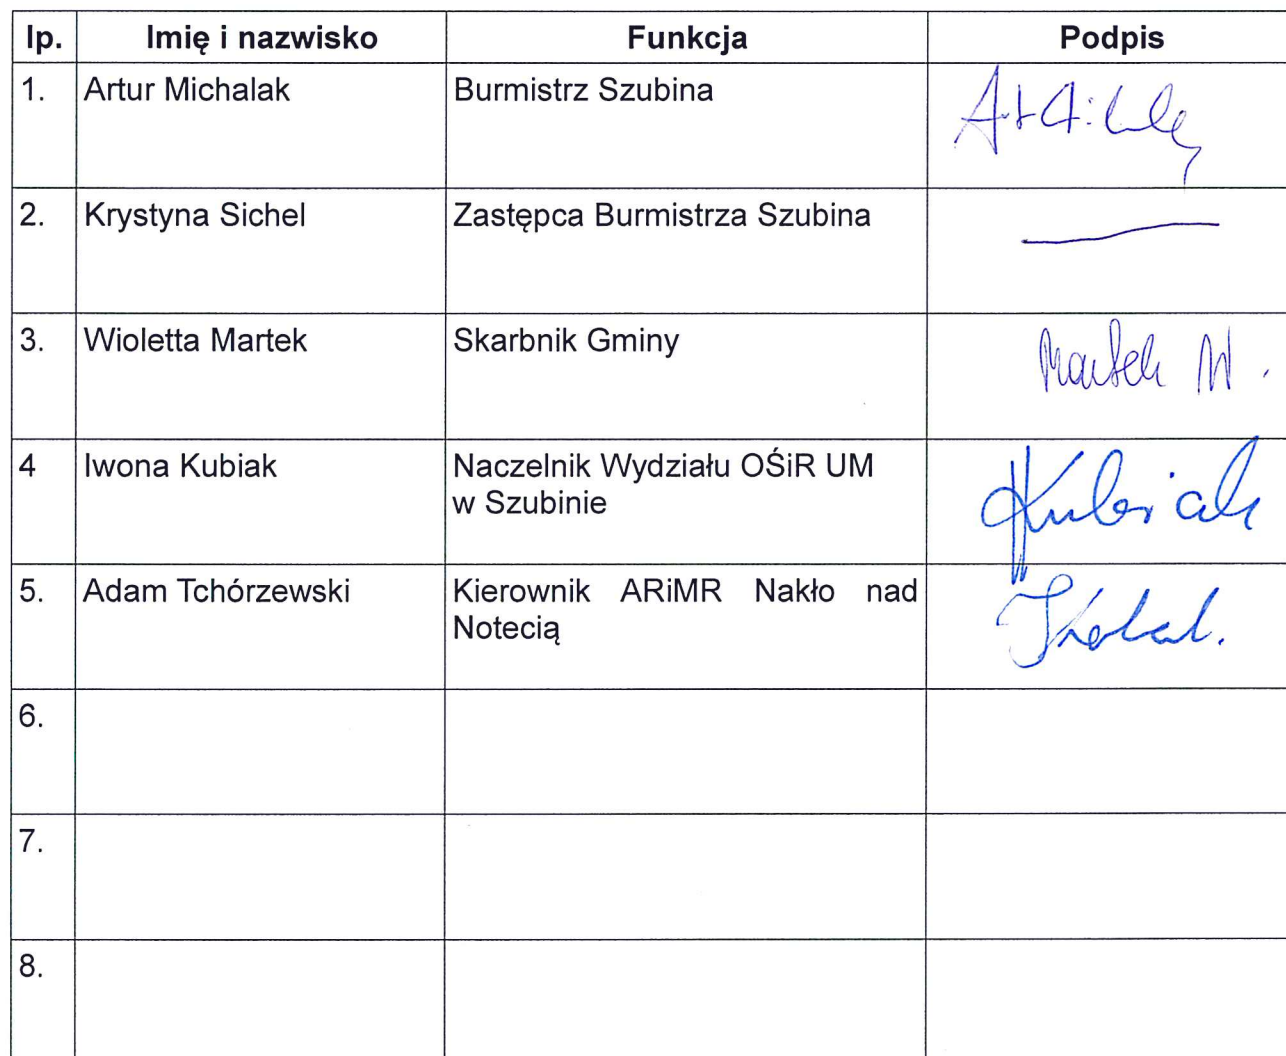 lp. Imię i nazwisko Funkcja Podpis
1. Artur Michalak Burmistrz Szubina
2. Krystyna Sichel Zastępca Burmistrza Szubina
3. Wioletta Martek Skarbnik Gminy Martek W.
4 Iwona Kubiak Naczelnik Wydziału OŚiR UM
w Szubinie Kubiak
5. Adam Tchórzewski Kierownik ARiMR Nakło nad
Notecią
6.
7.
8.